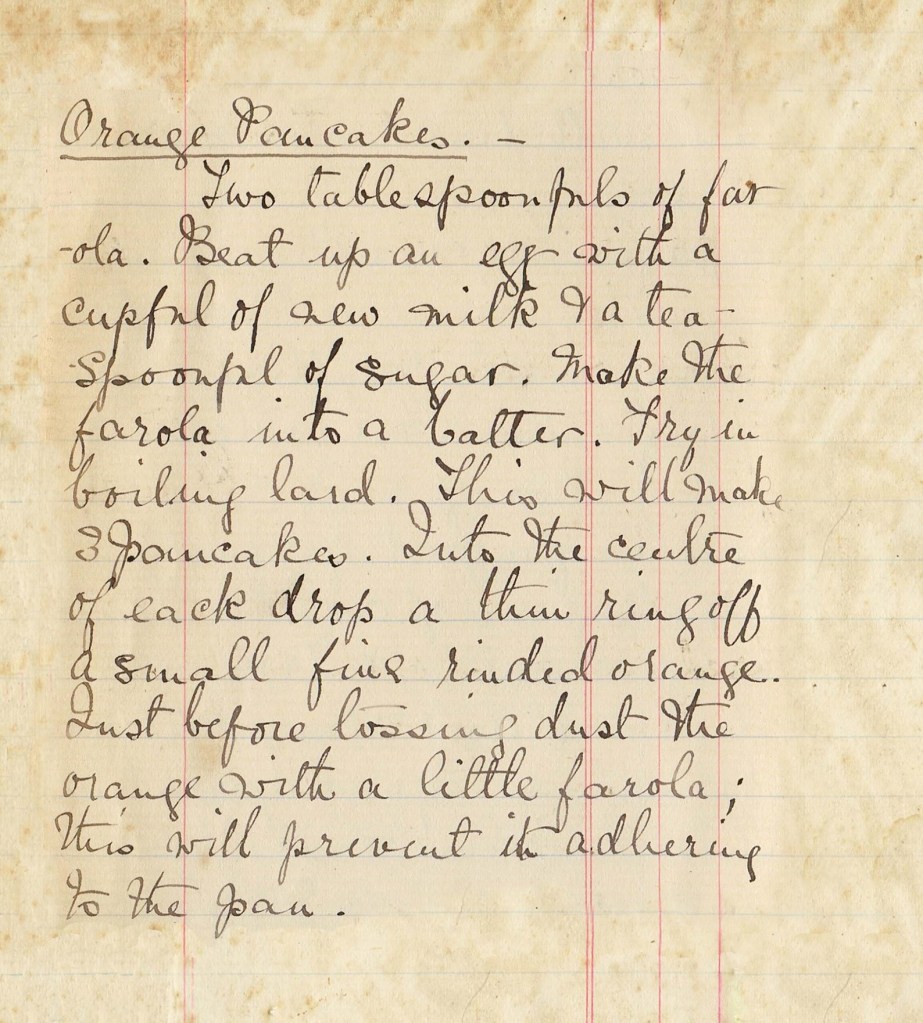 Orange Pancakes. —
Two tablespoonfuls of far
-ola. Beat up an egg with a
cupful of new milk & a tea-
-spoonful of sugar. Make the
farola into a batter. Fry in
boiling lard. This will make
3 pancakes. Into the centre
of each drop a thin ring off
a small fine rinded orange.
Just before tossing dust the
orange with a little farola;
this will prevent it adhering
to the pan.